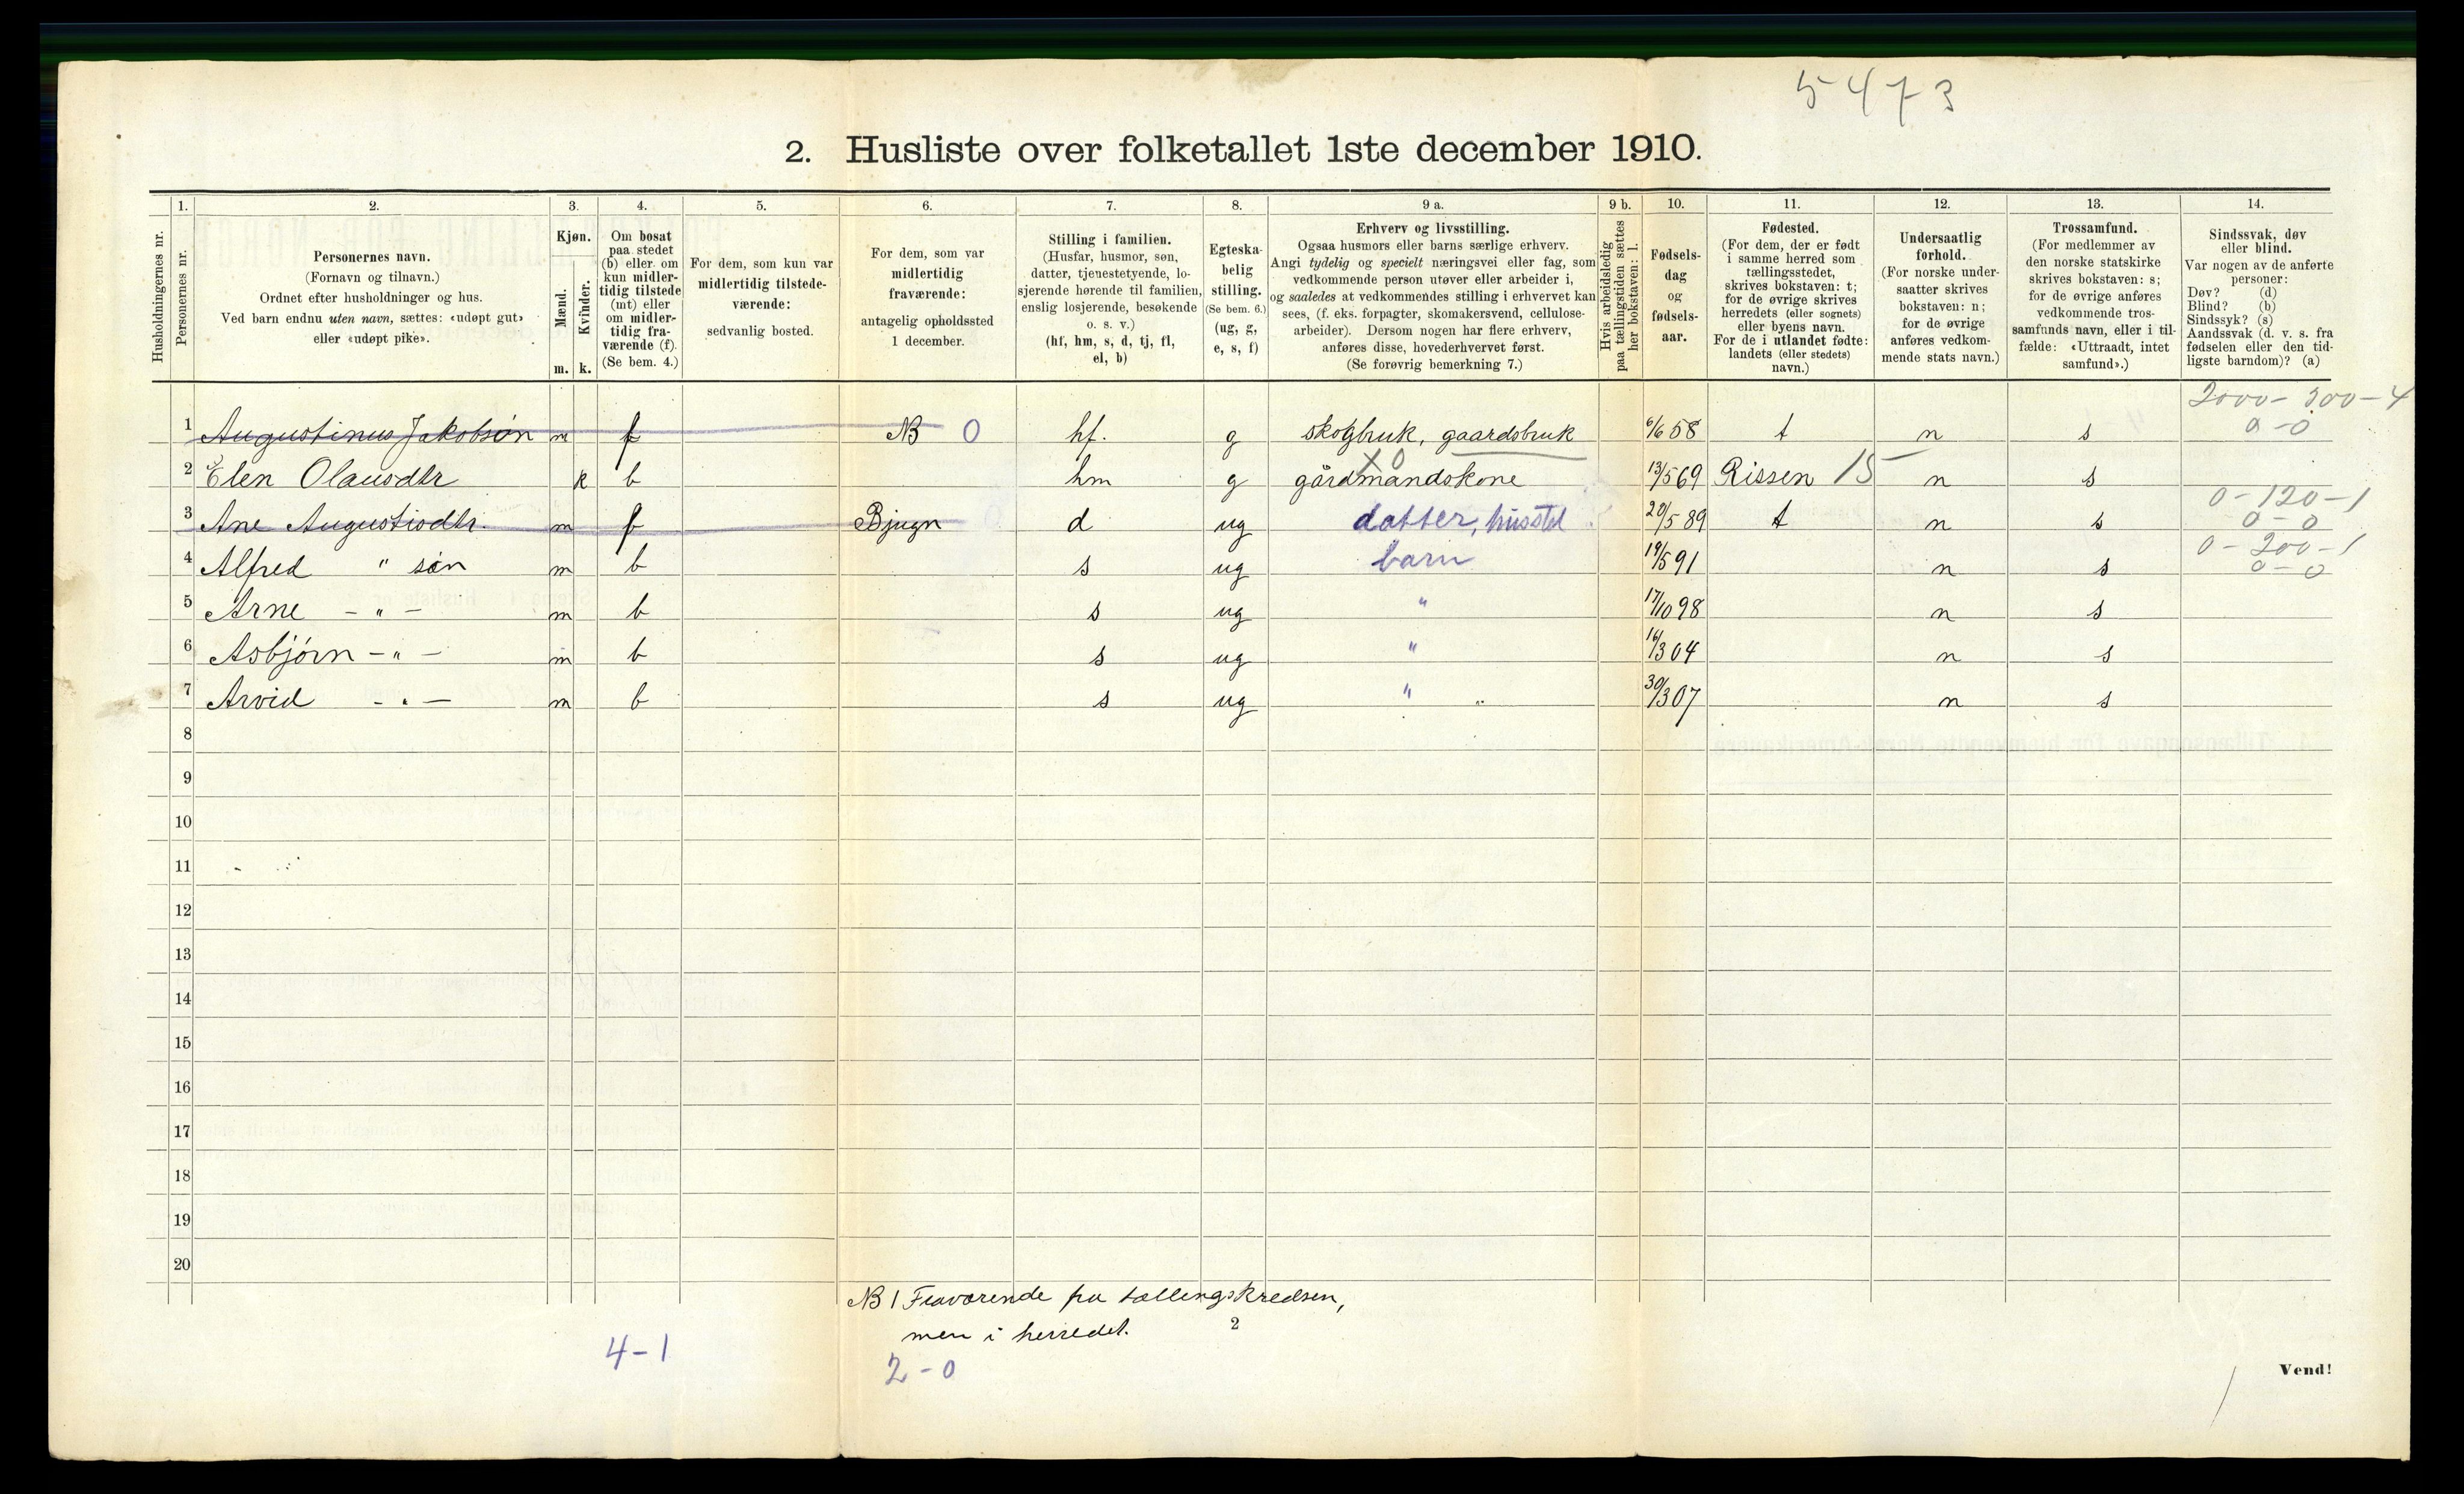 5473
2. Husliste over folketallet 1ste december 1910.
Husholdningernes nr.
1. Personernes nr.
2. Personernes navn.
(Fornavn og tilnavn.)
Ordnet efter husholdninger og hus.
Ved barn endnu uten navn, sættes: «udøpt gut»
eller «udøpt pike».
3. Kjøn.
Mænd. m.
Kvinder. k.
4. Om bosat
paa stedet
(b) eller om
kun midler-
tidig tilstede
(mt) eller
om midler-
tidig fra-
værende (f).
(Se bem. 4.)
5. For dem, som kun var
midlertidig tilstede-
værende:
sedvanlig bosted.
6. For dem, som var
midlertidig
fraværende:
antagelig opholdssted
1 december.
7. Stilling i familien.
(Husfar, husmor, søn,
datter, tjenestetyende, lo-
sjerende hørende til familien,
enslig losjerende, besøkende
o. s. v.)
(hf, hm, s, d, tj, fl,
el, b)
8. Egteska-
belig
stilling.
(Se bem. 6.)
(ug, g,
e, s, f)
9 a. Erhverv og livsstilling.
Ogsaa husmors eller barns særlige erhverv.
Angi tydelig og specielt næringsvei eller fag, som
vedkommende person utøver eller arbeider i,
og saaledes at vedkommendes stilling i erhvervet kan
sees, (f. eks. forpagter, skomakersvend, cellulose-
arbeider). Dersom nogen har flere erhverv,
anføres disse, hovederhvervet først.
(Se forøvrig bemerkning 7.)
9 b. Hvis arbeidsledig
paa tællingstiden sættes
her bokstaven: l.
10. Fødsels-
dag
og
fødsels-
aar.
11. Fødested.
(For dem, der er født
i samme herred som
tællingsstedet,
skrives bokstaven: t;
for de øvrige skrives
herredets (eller sognets)
eller byens navn.
For de i utlandet fødte:
landets (eller stedets)
navn.)
12. Undersaatlig
forhold.
(For norske under-
saatter skrives
bokstaven: n;
for de øvrige
anføres vedkom-
mende stats navn.)
13. Trossamfund.
(For medlemmer av
den norske statskirke
skrives bokstaven: s;
for de øvrige anføres
vedkommende tros-
samfunds navn, eller i til-
fælde: «Uttraadt, intet
samfund».)
14. Sindssvak, døv
eller blind.
Var nogen av de anførte
personer:
Døv? (d)
Blind? (b)
Sindssyk? (s)
Aandssvak (d. v. s. fra
fødselen eller den tid-
ligste barndom)? (a)
2000-300-4
1 Augustinus Jakobsøn m f NB 0 hf. g skogbruk, gaardsbruk 6/6 58 t n s 0-0
X 0
2 Elen Olausdtr k b hm g gårdmandskone 13/5 69 Rissen 15 n s
0-120-1
3 Ane Augustisdtr. m f Bjugn d ug datter, husstel 20/5 89 t n s 0-0
0-200-1
4 Alfred " søn m b s ug barn 19/5 91 n s 0-0
5 Arne - " - m b s ug " 17/10 98 n s
6 Asbjørn - " - m b s ug " 16/3 04 n s
7 Arvid - " - m b s ug " 30/3 07 n s
8
9
10
11
12
13
14
15
16
17
18
19
20
NB 1 Fraværende fra tællingskredsen,
men i herredet.
2
4-1
2-0
Vend!